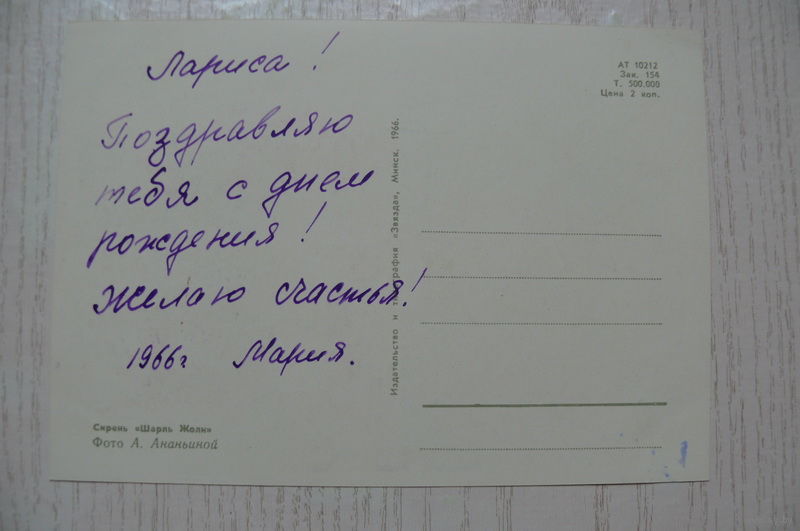 Лариса!
Поздравляю
тебя с днем
рождения!
Желаю счастья!
1966г Мария.
Сирень «Шарль Жоли»
Фото А. Ананьиной
Издательство и типография «Звязда», Минск. 1966.
АТ 10212
Зак. 154
Т. 500.000
Цена 2 коп.